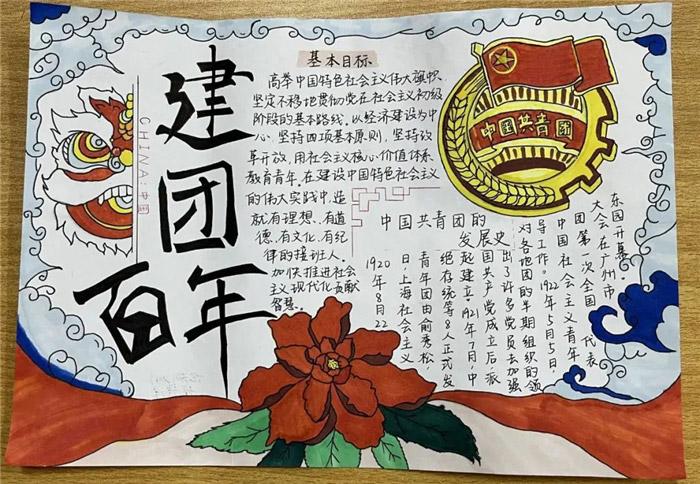 建
团
百年
CHINA:中国
基本目标
高举中国特色社会主义伟大旗帜,
坚定不移地贯彻党在社会主义初级
阶段的基本路线,以经济建设为中
心,坚持四项基本原则,坚持改
革开放,用社会主义核心价值体系
教育青年,在建设中国特色社会主义
的伟大实践中,造
就有理想、有道
德、有文化、有纪
律的接班人。
加快推进社会
主义现代化贡献
智慧。
中国共青团
中国共青团的
发展史
1920年8月22
日,上海社会主义
青年团由俞秀松
绝存统等8人正式发
起建立。1921年7月,中
国共产党成立后派
出了许多党员去加强
对各地团的早期组织的领
导工作。1922年5月5日,
中国社会主义青年
团第一次全国代表
大会在广州市
东园开幕。